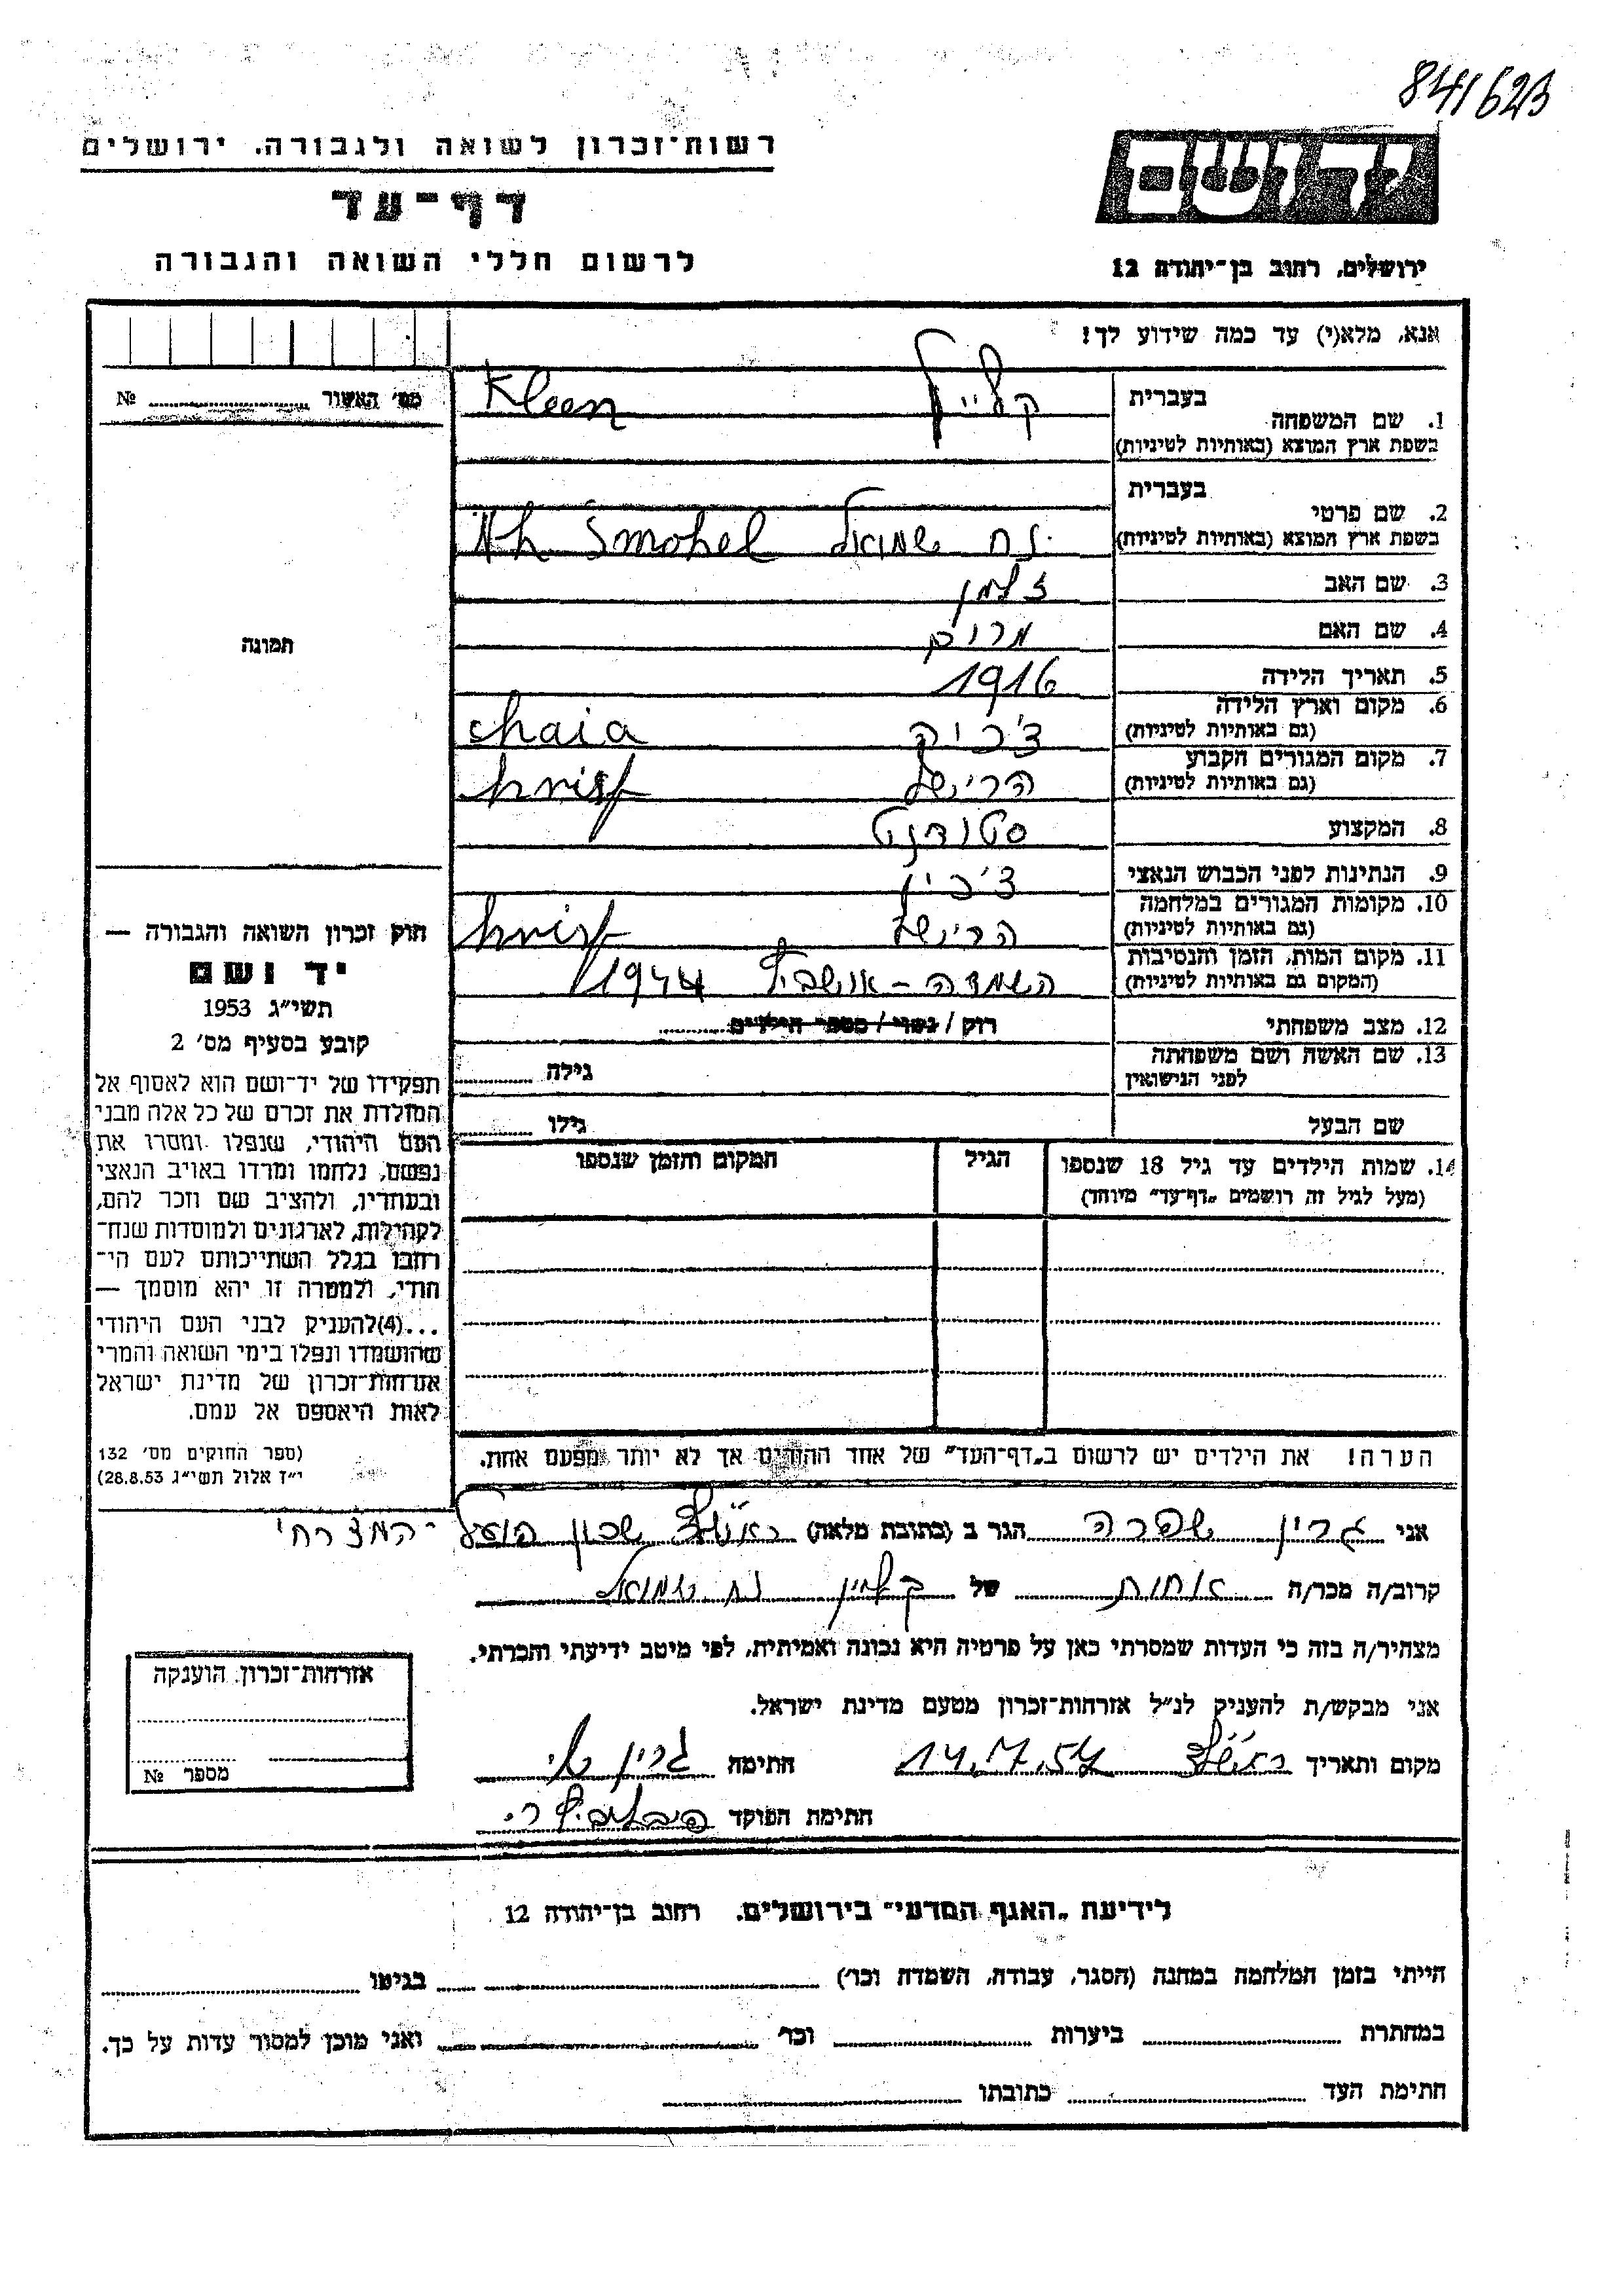 841623
רשות־זכרון לשואה ולגבורה. ירושלים
דף־עד
לרשום חללי השואה והגבורה
ידושם
ירושלים, רחוב בן־יהודה 12
אנא, מלא(י) עד כמה שידוע לך!
מס׳ האשור № 
1. שם המשפחה בעברית קליין Kleen
בשפת ארץ המוצא (באותיות לטיניות)
2. שם פרטי בעברית
בשפת ארץ המוצא (באותיות לטיניות) נח שמואל Nh Smohel
3. שם האב זלמן
4. שם האם מרים
5. תאריך הלידה 1916
6. מקום וארץ הלידה
(גם באותיות לטיניות) צ׳כיה chaia
7. מקום המגורים הקבוע
(גם באותיות לטיניות) הרישל
8. המקצוע סטודנט
9. הנתינות לפני הכבוש הנאצי צ׳כית
10. מקומות המגורים במלחמה
(גם באותיות לטיניות) הרישל
11. מקום המות, הזמן והנסיבות
(המקום גם באותיות לטיניות) השמדה - אושביץ 1944
12. מצב משפחתי רוק / נשוי / מספר הילדים
13. שם האשה ושם משפחתה
לפני הנישואין גילה
שם הבעל גילו
14. שמות הילדים עד גיל 18 שנספו
(מעל לגיל זה רושמים „דף־עד״ מיוחד)
הגיל
המקום והזמן שנספו
הערה! את הילדים יש לרשום ב„דף־העד״ של אחד ההורים אך לא יותר מפעם אחת.
תמונה
חוק זכרון השואה והגבורה —
יד ושם
תשי״ג 1953
קובע בסעיף מס׳ 2
תפקידו של יד־ושם הוא לאסוף אל
המולדת את זכרם של כל אלה מבני
העם היהודי, שנפלו ומסרו את
נפשם, נלחמו ומרדו באויב הנאצי
ובעוזריו, ולהציב שם וזכר להם,
לקהילות, לארגונים ולמוסדות שנח־
רחבו בגלל השתייכותם לעם הי־
הודי, ולמטרה זו יהא מוסמך —
...(4)להעניק לבני העם היהודי
שהושמדו ונפלו בימי השואה והמרי
אזרחות־זכרון של מדינת ישראל
לאות היאספם אל עמם.
(ספר החוקים מס׳ 132
י״ז אלול תשי״ג 28.8.53)
אני גרין שפרה הגר ב (כתובת מלאה) ראשל״צ שכון הפועל המצרחי
קרוב/ה מכר/ה אחות של קליין נח שמואל
מצהיר/ה בזה כי העדות שמסרתי כאן על פרטיה היא נכונה ואמיתית, לפי מיטב ידיעתי והכרתי.
אני מבקש/ת להעניק לנ״ל אזרחות־זכרון מטעם מדינת ישראל.
מקום ותאריך ראשל״צ 14.7.57 חתימה גרין
חתימת הפוקד
אזרחות־זכרון הוענקה
מספר №
לידיעת „האגף המדעי״ בירושלים. רחוב בן־יהודה 12
הייתי בזמן המלחמה במחנה (הסגר, עבודה, השמדה וכר׳) בגיטו
במחתרת ביערות וכר׳ ואני מוכן למסור עדות על כך.
חתימת העד כתובתו